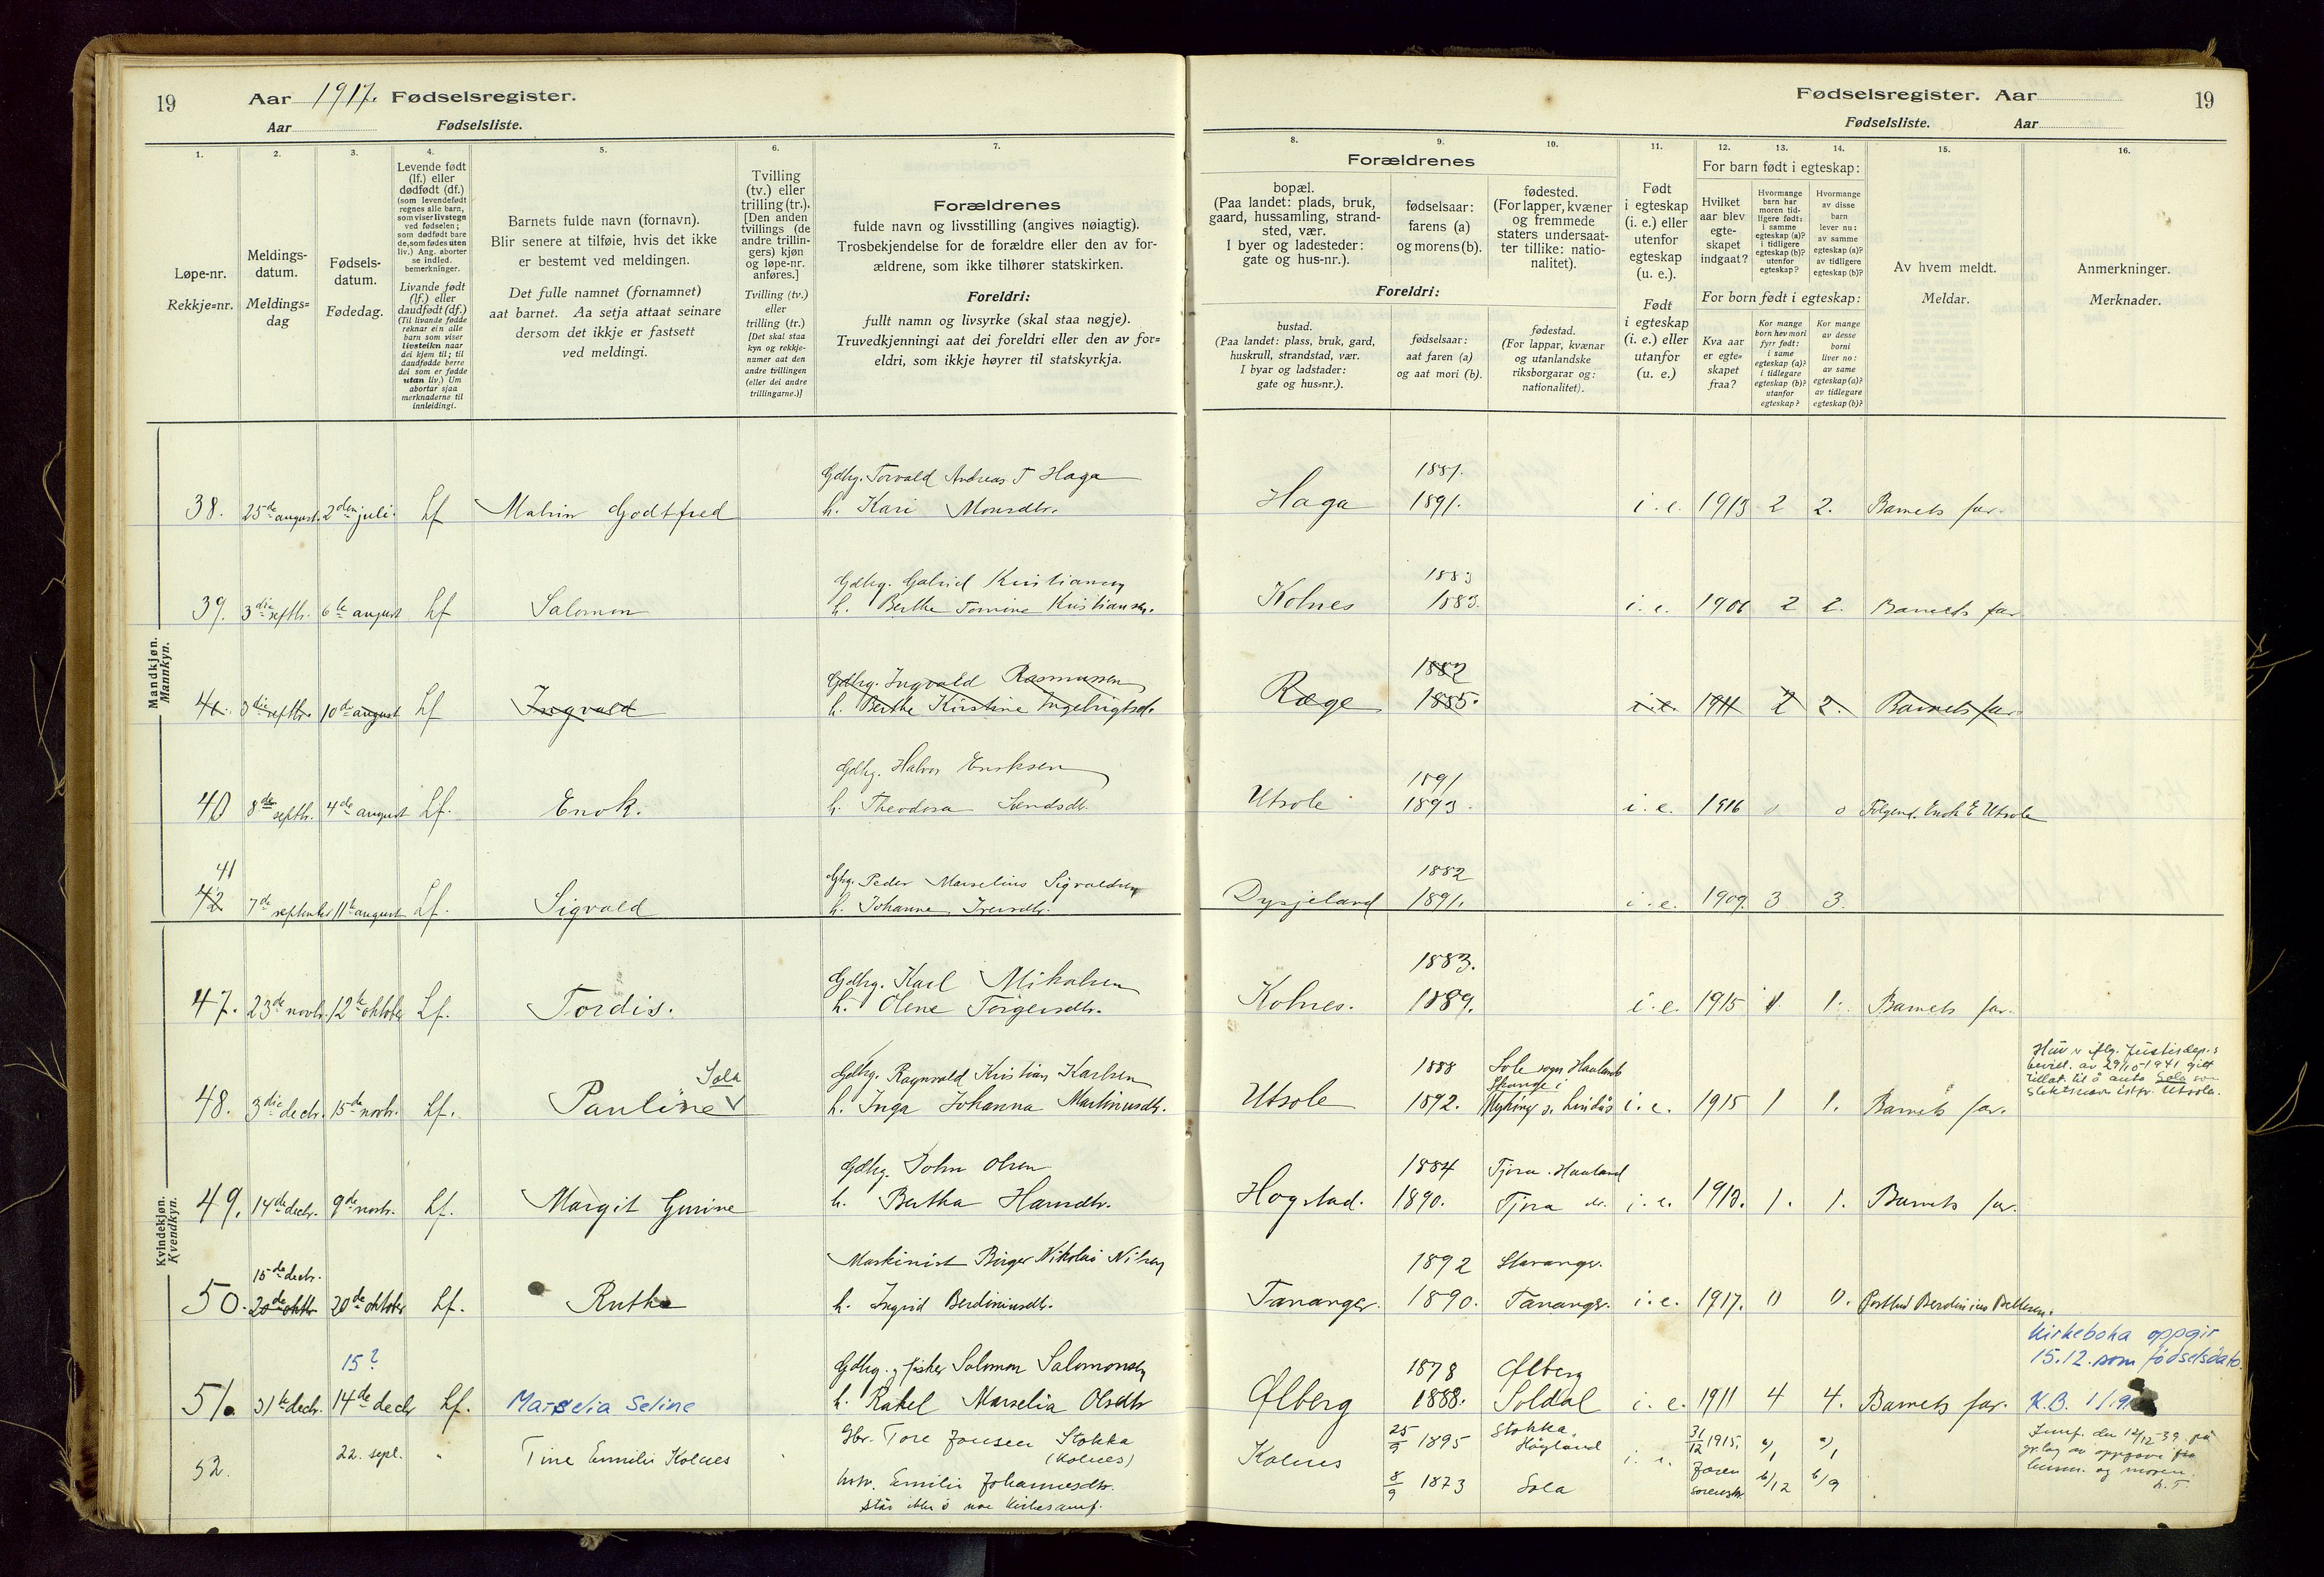 19
Aar 1917. Fødselsregister.
Aar Fødselsliste.
Fødselsregister. Aar
19
Fødselsliste. Aar
1.
2.
3.
4.
5.
6.
7.
8.
9.
10.
11.
12.
13.
14.
15.
16.
Løpe-nr.
Rekkje=nr.
Meldings-
datum.
Meldings=
dag
Fødsels-
datum.
Fødedag.
Levende født
(lf.) eller
dødfødt (df.)
(som levendefødt
regnes alle barn,
som viser livstegn
ved fødselen;
som dødfødt bare
de, som fødes uten
liv.) Ang. aborter
se indled.
bemerkninger.
Livande født
(lf.) eller
daudfødt (df.)
(Til livande fødde
reknar ein alle
barn som viser
livsteikn naar
dei kjem til; til
daudfødde berre
dei som er fødde
utan liv.) Um
abortar sjaa
merknaderne til
innleidingi.
Barnets fulde navn (fornavn).
Blir senere at tilføie, hvis det ikke
er bestemt ved meldingen.
Det fulle namnet (fornamnet)
aat barnet. Aa setja attaat seinare
dersom det ikkje er fastsett
ved meldingi.
Tvilling
(tv.) eller
trilling (tr.).
[Den anden
tvillings (de
andre trillin-
gers) kjøn
og løpe-nr.
anføres.]
Tvilling (tv.)
eller
trilling (tr.)
[Det skal staa
kyn og rekkje-
numer aat den
andre tvillingen
(eller dei andre
trillingarne.)]
Forældrenes
fulde navn og livsstilling (angives nøiagtig).
Trosbekjendelse for de forældre eller den av for-
ældrene, som ikke tilhører statskirken.
Foreldri:
fullt namn og livsyrke (skal staa nøgje).
Truvedkjenningi aat dei foreldri eller den av for=
eldri, som ikkje høyrer til statskyrkja.
Forældrenes
bopæl.
(Paa landet: plads, bruk,
gaard, hussamling, strand-
sted, vær.
I byer og ladesteder:
gate og hus-nr.).
fødselsaar:
farens (a)
og morens (b).
fødested.
(For lapper, kvæner
og fremmede
staters undersaat-
ter tillike: natio-
nalitet).
Foreldri:
bustad.
(Paa landet: plass, bruk, gard,
huskrull, strandstad, vær.
I byar og ladstader:
gate og hus=nr.).
fødselsaar:
aat faren (a)
og aat mori (b).
fødestad.
(For lappar, kvænar
og utanlandske
riksborgarar og:
nationalitet).
Født
i egteskap
(i. e.) eller
utenfor
egteskap
(u. e.).
Født
i egteskap
(i. e.) eller
utanfor
(u. e.)
For barn født i egteskap:
Hvilket
aar blev
egte-
skapet
indgaat?
Hvormange
barn har
moren tid-
ligere født:
i samme
egteskap (a)?
i tidligere
egteskap (b)?
utenfor
egteskap?
Hvormange
av disse
barn
lever nu:
av samme
egteskap (a)?
av tidligere
egteskap (b)?
For born født i egteskap:
Kva aar
er egte=
skapet
fraa?
Kor mange
born hev mori
fyrr født:
i same
egteskap (a)?
i tidlegare
egteskap (b)?
utanfor
egteskap?
Kor mange
av desse
borni
liver no:
av same
egteskap (a)?
av tidlegare
egteskap (b)?
Av hvem meldt.
Meldar.
Anmerkninger.
Merknader.
Mandkjøn.
Mannkyn.
38. 25de august. 2den juli. Lf Malvin Godtfred Gdbg. Torvald Andreas T Haga
h. Kari Monsdtr.
Haga 1881. 1891. i. e. 1913 2 2. Barnets far.
39. 3die septbr. 6te august Lf Salomon Gdbrg. Gabriel Kristiansen
h. Berthe Tomine Kristiansdtr.
Kolnes 1883 1883. i. e. 1906 2 2. Barnets far
41. 3die septbr. 10de august Lf Ingvald Gdbrg. Ingvald Rasmussen
h. Berthe Kirstine Ingebrigtsd.
Ræge 1882 1885. i. e. 1911 2 2. Barnets far
40 8de septbr. 4de august Lf. Enok. Gdbg. Halvor Enoksen
h. Theodora Sandsdtr.
Utsole 1891 1893. i. e. 1916 0 0 Enok E Utsole
41
42 7de september 11te august Lf. Sigvald Gbg. Peder Marselius Sigvaldsen
h. Johanne
Dysjeland 1882 1891. i. e. 1909. 3 3.
Kvindekjøn.
Kvendkyn.
47. 23de novbr. 12te oktober Lf. Tordis. Gdbrg. Karl Mikalsen
h. Olene Torgersdtr.
Kolnes. 1883. 1889. i. e. 1915 1. 1. Barnets far.
48. 3die decbr. 15de novbr. Lf. Pauline Sola Gdbrg. Ragnvald Kristian Karlsen
h. Inga Johanna Martinusdtr.
Utsole 1888 1892. Sole sogn Haaland
s. Lindås i. e. 1915 1 1. Barnets far.
Hun er iflg. Justisdep.s
bevill. av 29/10-1941 gitt
tillat. til å anta Sola som
slektsnavn istf. Utsola.
49. 14de decbr. 9de novbr. Lf. Margit Gurine Gdbrg. John Olsen
h. Bertha Hansdtr.
Hogstad. 1884 1890. Tjora. Haaland
Tjora do. i. e. 1913. 1. 1. Barnets far.
50. 15de decbr. 20de oktbr 20de oktober Lf. Ruth Maskinist Birger Nikolai Nilsen
h. Ingrid Berdiniusdtr.
Tananger. 1892 1890. Stavanger.
Tananger. i. e. 1917. 0 0. Berdinius
51. 31te decbr. 15? 14de decbr Lf. Marselia Seline Gdbrg. og fisker Salomon Salomonsen
h. Rakel Marselia Olsdtr
Ølberg 1878 1888. Ølberg
Soldal i. e. 1911 4 4. Barnets far.
Kirkeboka oppgir
15.12. som fødselsdato.
K.B.
52. 22. sept. " Tine Emilie Kolnes Gbr. Tore Jonsen Stokka
(Kolnes)
hstr. Emilie Johannesdtr.
står ikke i noe kirkesamf.
Kolnes 25/9 1895 8/9 1873 Stokka,
Høyland
Sola 31/12 1915. a/1 a/1 b/12 b/9
Innf. den 12/12-39 på
gr.lag av oppgave fra
og moren.